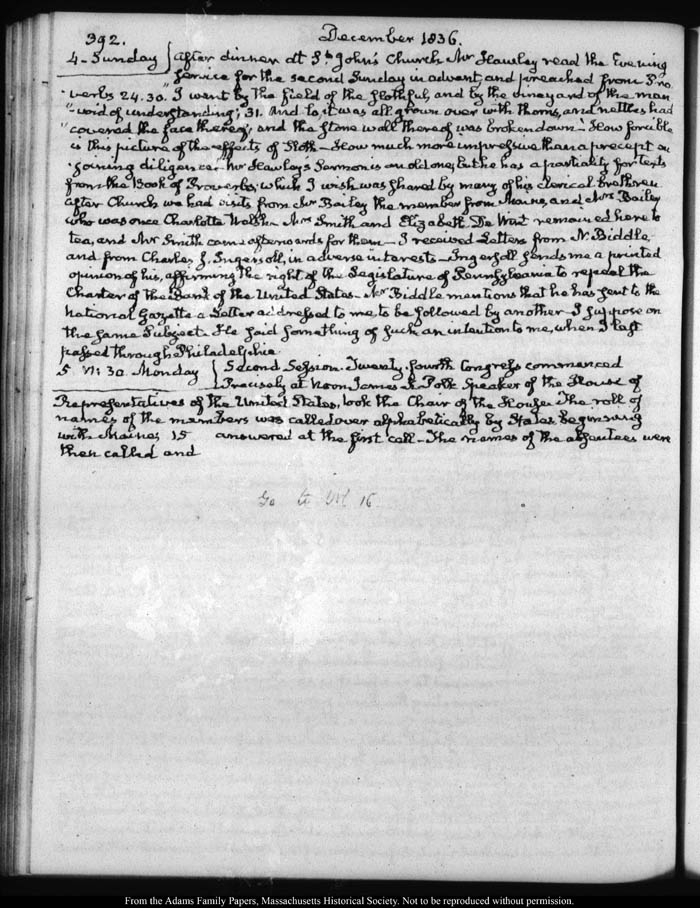 392.
December 1836.
4. Sunday } After dinner at St. John's Church Mr Hawley read the Evening
Service for the second Sunday in advent, and preached from Pro-
"verbs 24.30. I went by the field of the slothful, and by the vineyard of the man
"void of understanding; 31. And lo, it was all grown over with thorns, and nettles had
"covered the face thereof, and the stone wall thereof was broken down. How forcible
is this picture of the effects of Sloth—How much more impressive than a precept en-
joining diligence. Mr Hawley's Sermon is an old one, but he has a partiality for texts
from the Book of Proverbs, which I wish was shared by many of his clerical brethren
After Church we had visits from Mr Bailey the member from Maine, and Mrs Bailey
who was once Charlotte Mrs Smith and Elizabeth De Wint remained here to
tea, and Mr Smith came afterwards for them—I received Letters from N. Biddle,
and from Charles J. Ingersoll, in adverse interests—Ingersoll sends me a printed
opinion of his, affirming the right of the Legislature of Pennsylvania to repeal the
Charter of the Bank of the United States. Mr Biddle mentions that he has sent to the
National Gazette a Letter addressed to me, to be followed by another—I suppose on
the same subject. He said something of such an intention to me, when I last
passed through Philadelphia
5. VI: 30. Monday } Second Session. Twenty-fourth Congress commenced
Precisely at Noon James K. Polk Speaker of the House of
Representatives of the United States, took the Chair of the House. The roll of
names of the members was called over alphabetically by States beginning
with Maine; 15 answered at the first call—The names of the absentees were
then called and
Go to Vol 16
From the Adams Family Papers, Massachusetts Historical Society. Not to be reproduced without permission.